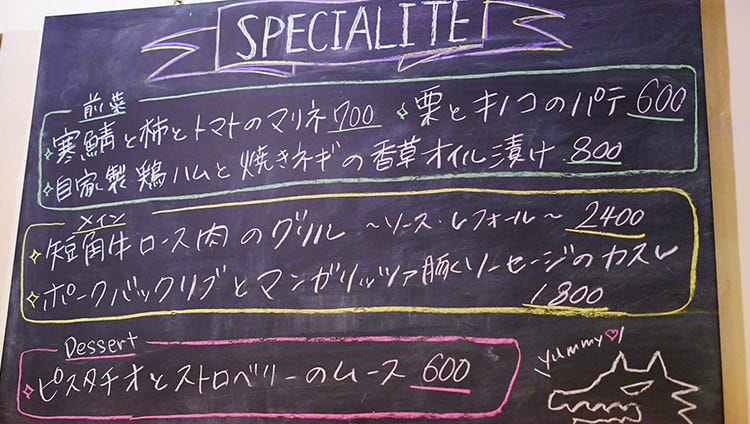 SPECIALITE
前菜
寒鯖と柿とトマトのマリネ 700 栗とキノコのパテ 600
自家製鶏ハムと焼きネギの香草オイル漬け 800
メイン
短角牛ロース肉のグリル ～ソース・レフォール～ 2400
ポークバックリブとマンガリッツァ豚くソーセージのカスレ
1800
Dessert
ピスタチオとストロベリーのムース 600
yummy♡!